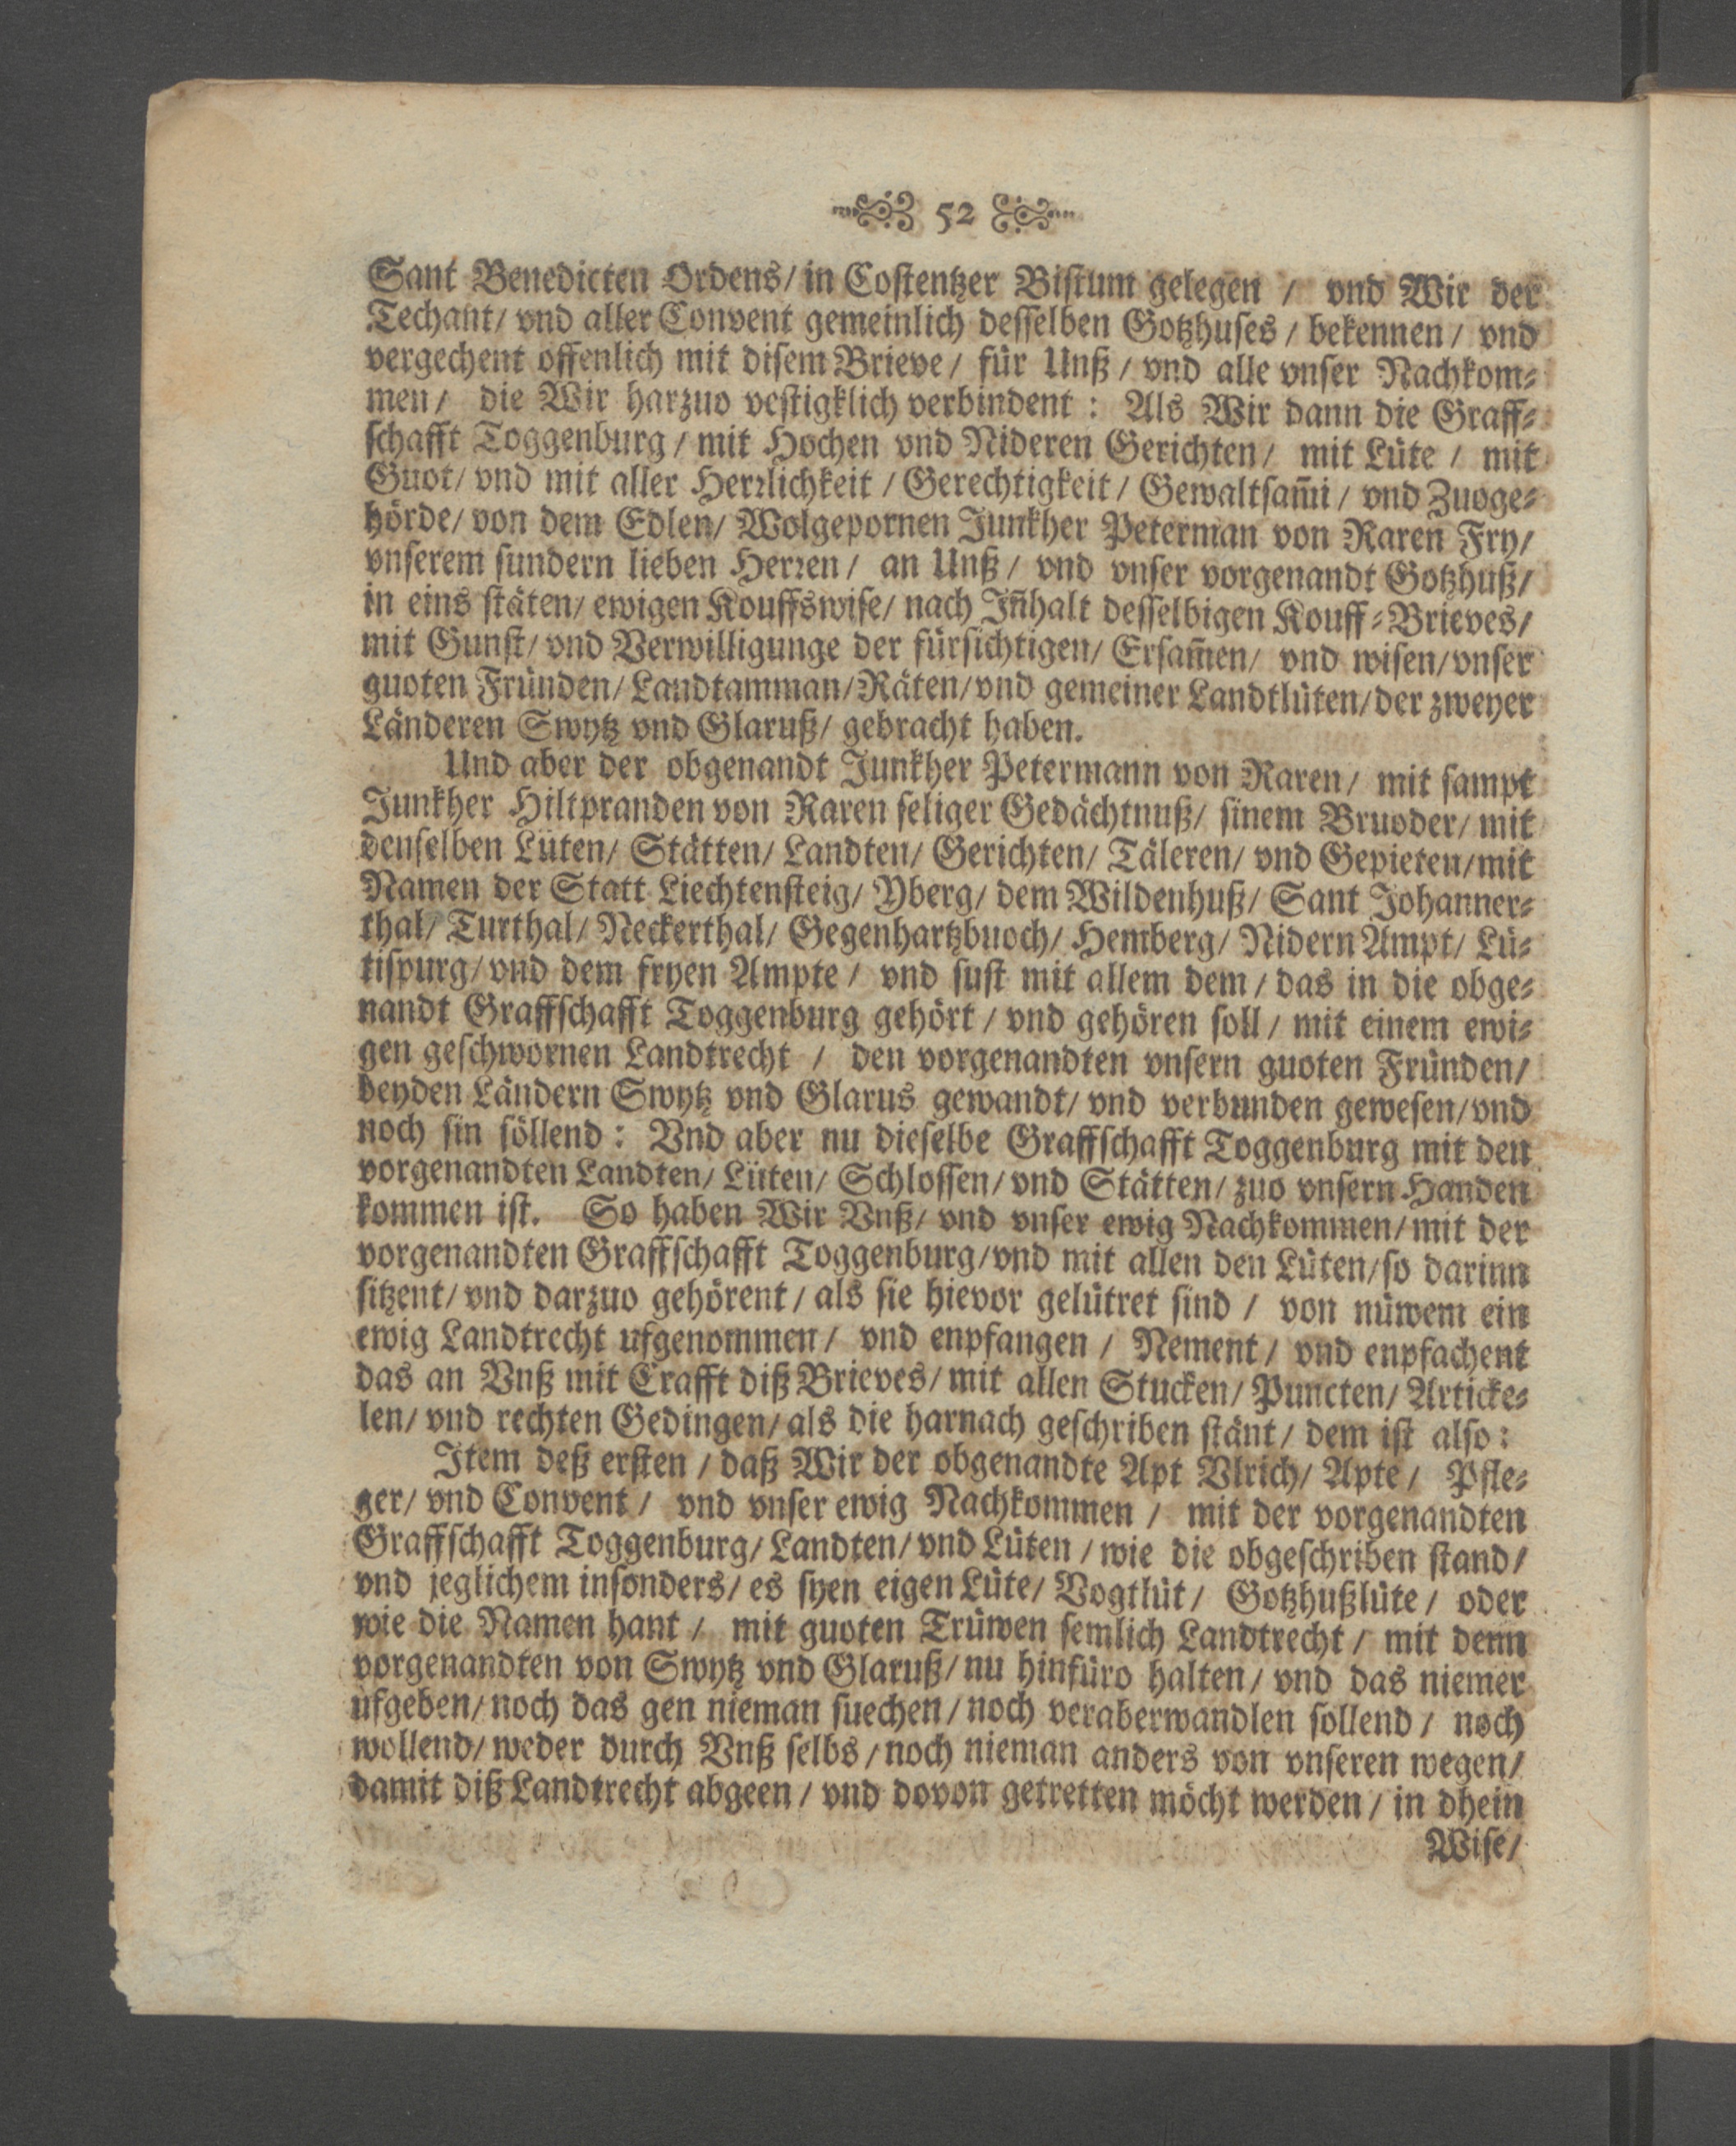 52
Sant Benedicten Ordens/ in Costentzer Bistum gelegen / vnd Wir der
Techant/ vnd aller Convent gemeinlich desselben Gotzhuses / bekennen / vnd
vergechent offenlich mit disem Brieve / für Unß / vnd alle vnser Nachkom⸗
men / die Wir harzuo vestigklich verbindent : Als Wir dann die Graff⸗
schafft Toggenburg / mit Hochen vnd Nideren Gerichten / mit Lüte / mit
Guot/ vnd mit aller Herrlichkeit / Gerechtigkeit / Gewaltsam̃i / vnd Zuoge⸗
hörde/ von dem Edlen/ Wolgepornen Junkher Peterman von Raren Fry/
vnserem sundern lieben Herren / an Unß / vnd vnser vorgenandt Gotzhuß/
in eins stäten/ ewigen Kouffswise/ nach Iñhalt desselbigen Kouff⸗Brieves/
mit Gunst/ vnd Verwilligunge der fürsichtigen/ Ersam̃en/ vnd wisen/vnser
guoten Fründen/Landtamman/Räten/vnd gemeiner Landtlüten/der zweyer
Länderen Swytz vnd Glaruß/ gebracht haben.
Und aber der obgenandt Junkher Petermann von Raren / mit sampt
Junkher Hiltpranden von Raren seliger Gedächtnuß/ sinem Bruoder/ mit
denselben Lüten/ Stätten/ Landten/ Gerichten/ Täleren/ vnd Gepieten/mit
Namen der Statt Liechtensteig/ Yberg/ dem Wildenhuß/ Sant Johanner⸗
thal/ Turthal/ Neckerthal/ Gegenhartzbuoch/ Hemberg/ Nidern Ampt/ Lü⸗
tispurg/ vnd dem fryen Ampte / vnd sust mit allem dem / das in die obge⸗
nandt Graffschafft Toggenburg gehört / vnd gehören soll / mit einem ewi⸗
gen geschwornen Landtrecht / den vorgenandten vnsern guoten Fründen/
beyden Ländern Swytz vnd Glarus gewandt/ vnd verbunden gewesen/vnd
noch sin söllend : Vnd aber nu dieselbe Graffschafft Toggenburg mit den
vorgenandten Landten/ Lüten/ Schlossen/ vnd Stätten/ zuo vnsern Handen
kommen ist. So haben Wir Vnß/ vnd vnser ewig Nachkommen/ mit der
vorgenandten Graffschafft Toggenburg/vnd mit allen den Lüten/so darinn
sitzent/ vnd darzuo gehörent / als sie hievor gelütret sind / von nüwem ein
ewig Landtrecht ufgenommen / vnd enpfangen / Nement / vnd enpfachent
das an Vnß mit Crafft diß Brieves/ mit allen Stucken/ Puncten/ Articke⸗
len/ vnd rechten Gedingen/ als die harnach geschriben stänt / dem ist also :
Item deß ersten / daß Wir der obgenandte Apt Vlrich/ Apte / Pfle⸗
ger/ vnd Convent / vnd vnser ewig Nachkommen / mit der vorgenandten
Graffschafft Toggenburg/ Landten/ vnd Lüten / wie die obgeschriben stand/
vnd jeglichem insonders/ es syen eigen Lüte/ Vogtlüt / Gotzhußlüte / oder
wie die Namen hant / mit guoten Trüwen semlich Landtrecht / mit denn
vorgenandten von Swytz vnd Glaruß/ nu hinfüro halten / vnd das niemer
ufgeben/ noch das gen nieman suechen / noch veraberwandlen sollend / noch
wollend/ weder durch Vnß selbs / noch nieman anders von vnseren wegen/
damit diß Landtrecht abgeen / vnd dovon getretten möcht werden / in dhein
Wise/